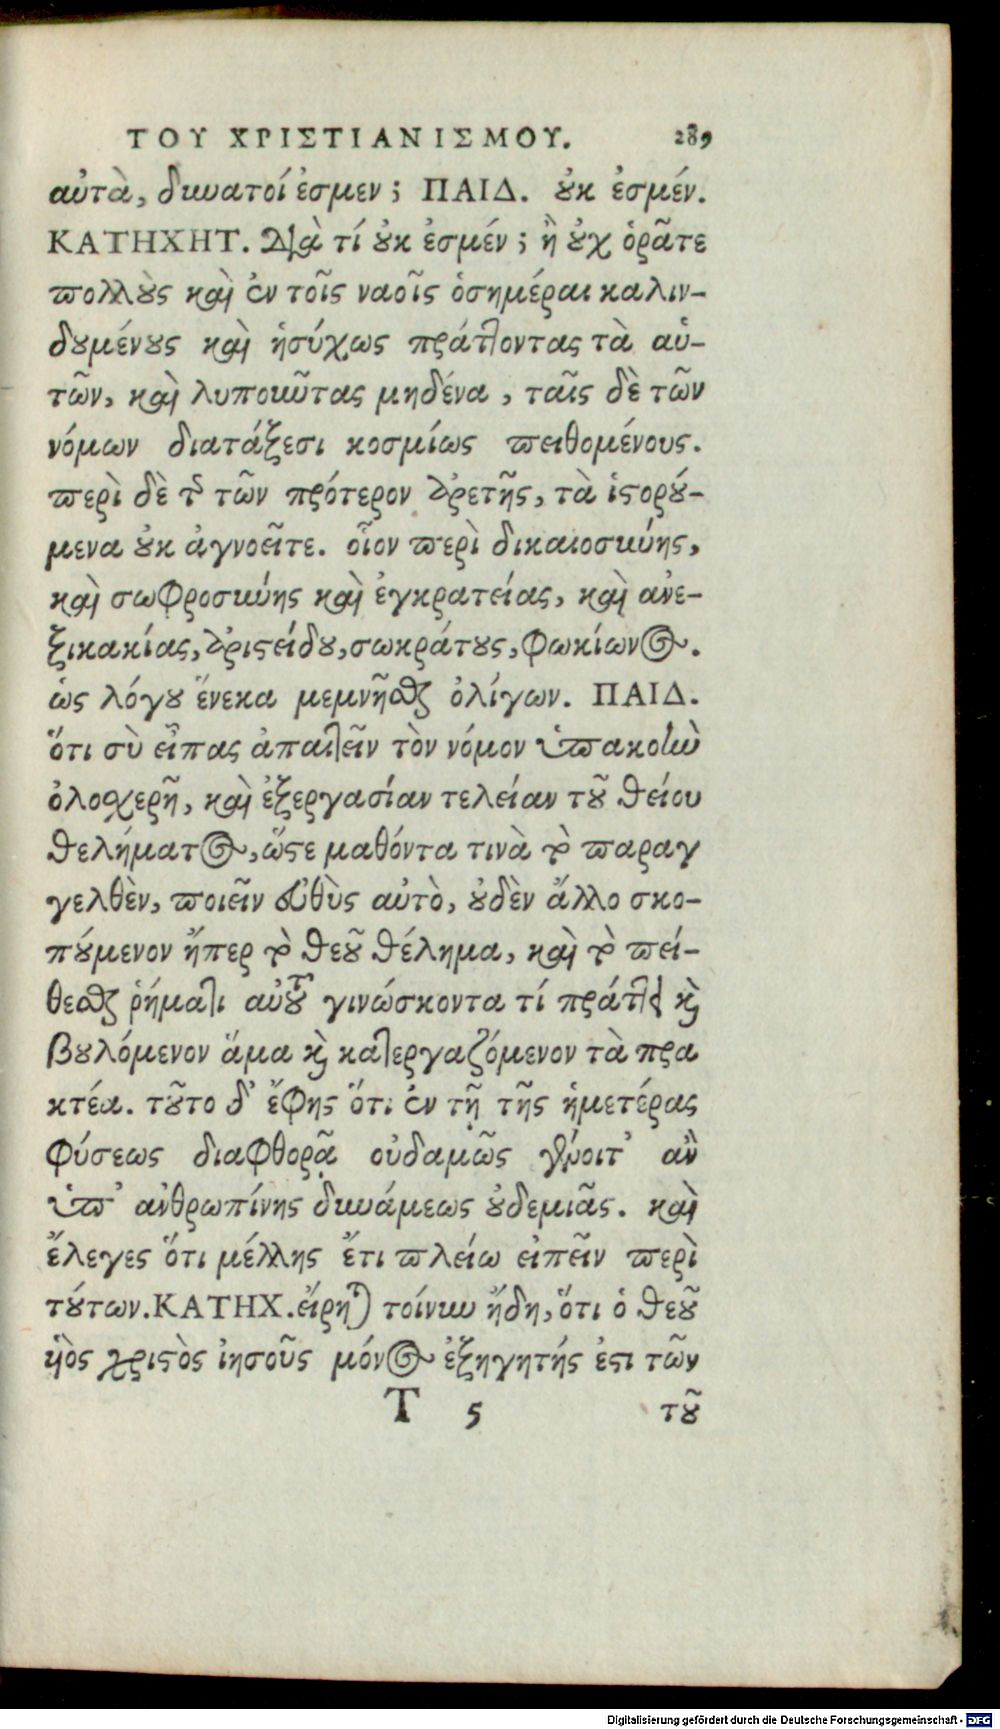 ΤΟΥ ΧΡΙΣΤΙΑΝΙΣΜΟΥ. 289
αὐτὰ, δυνατοί ἐσμεν; ΠΑΙΔ. οὐκ ἐσμέν.
ΚΑΤΗΧΗΤ. Διὰ τί οὐκ ἐσμέν; ἢ οὐχ ὁρᾶτε
πολλοὺς καὶ ἐν τοῖς ναοῖς ὁσημέραι καλιν-
δουμένους καὶ ἡσύχως πράττοντας τὰ αὑ-
τῶν, καὶ λυποῦντας μηδένα, ταῖς δὲ τῶν
νόμων διατάξεσι κοσμίως πειθομένους.
περὶ δὲ τῆς τῶν πρότερον ἀρετῆς, τὰ ἱστορού-
μενα οὐκ ἀγνοεῖτε. οἷον περὶ δικαιοσύνης,
καὶ σωφροσύνης καὶ ἐγκρατείας, καὶ ἀνε-
ξικακίας, ἀριστείδου, σωκράτους, φωκίωνος.
ὡς λόγου ἕνεκα μεμνῆσθαι ὀλίγων. ΠΑΙΔ.
ὅτι σὺ εἶπας ἀπαιτεῖν τὸν νόμον ὑπακοὴν
ὁλοσχερῆ, καὶ ἐξεργασίαν τελείαν τοῦ θείου
θελήματος, ὥστε μαθόντα τινὰ τὸ παραγ
γελθὲν, ποιεῖν εὐθὺς αὐτὸ, οὐδὲν ἄλλο σκο-
πούμενον ἤπερ τὸ θεοῦ θέλημα, καὶ τὸ πεί-
θεσθαι ῥήματι αὐτοῦ γινώσκοντα τί πράττει καὶ
βουλόμενον ἅμα καὶ κατεργαζόμενον τὰ πρα
κτέα. τοῦτο δ' ἔφης ὅτι ἐν τῇ τῆς ἡμετέρας
φύσεως διαφθορᾷ οὐδαμῶς γένοιτ' ἂν
ὑπ' ἀνθρωπίνης δυνάμεως οὐδεμιᾶς. καὶ
ἔλεγες ὅτι μέλλης ἔτι πλείω εἰπεῖν περὶ
τούτων. ΚΑΤΗΧ. εἴρηται τοίνυν ἤδη, ὅτι ὁ θεοῦ
ὑὸς χριστὸς ἰησοῦς μόνος ἐξηγητής ἐστι τῶν
T 5 τοῦ
Digitalisierung gefördert durch die Deutsche Forschungsgemeinschaft - DFG